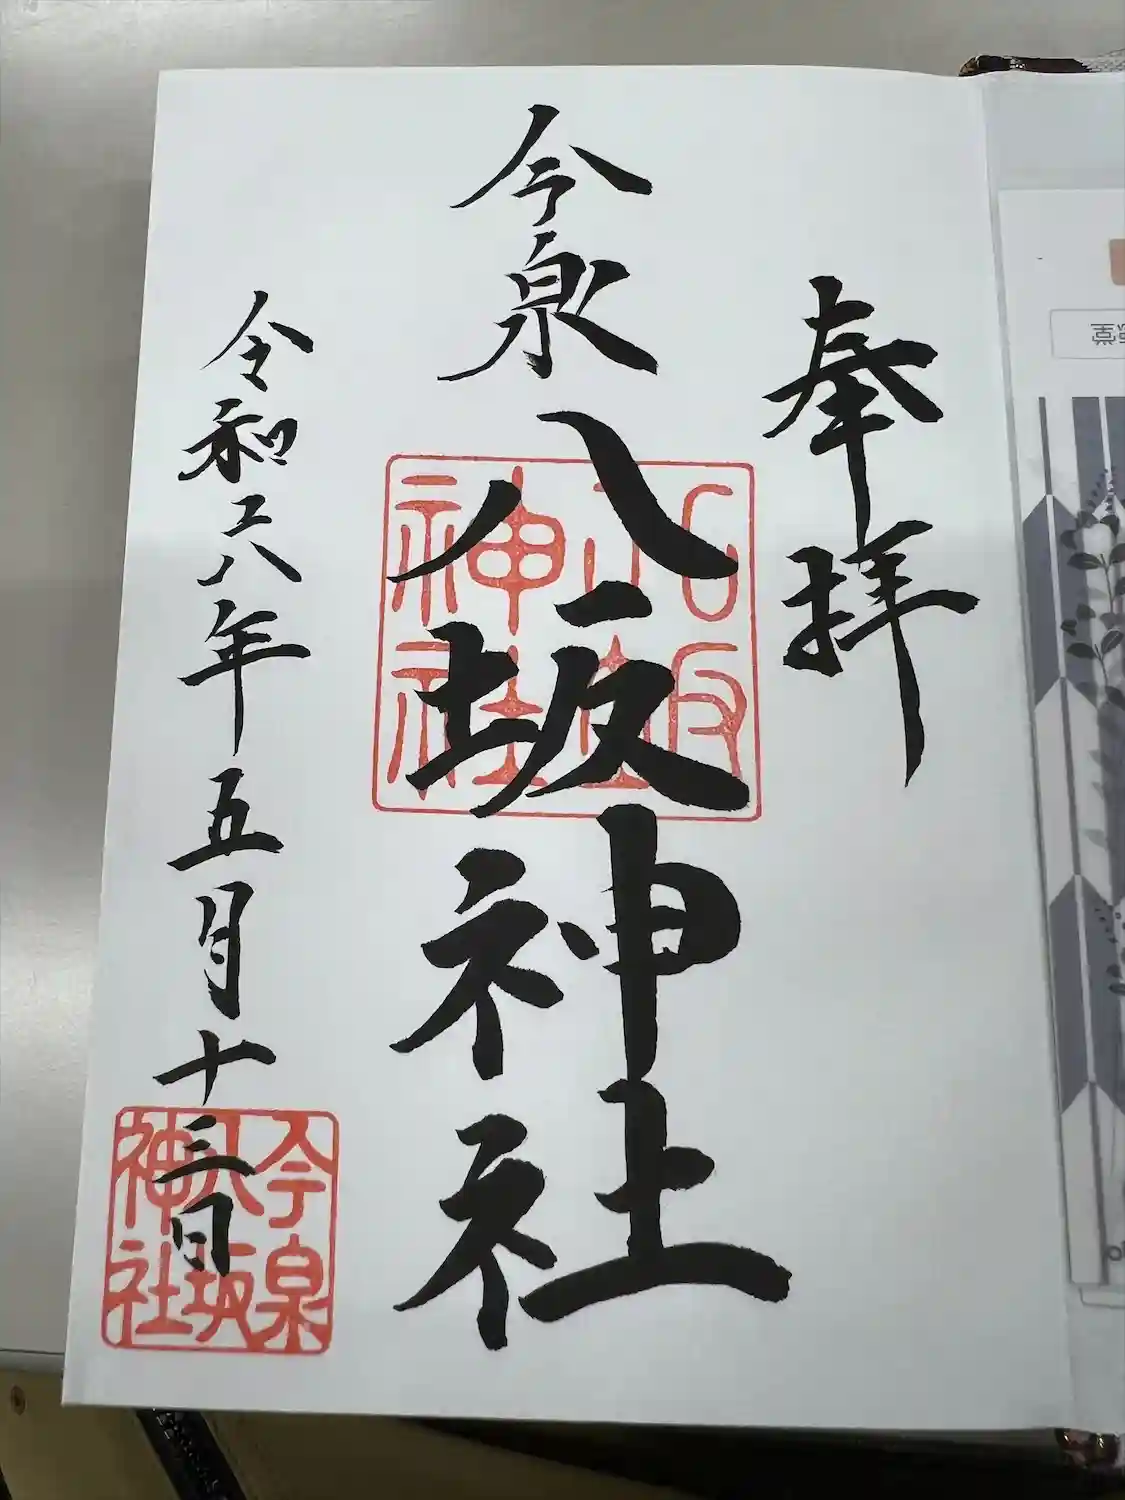 奉拝
今泉八坂神社
令和六年五月十三日
八坂
神社
今泉
八坂
神社